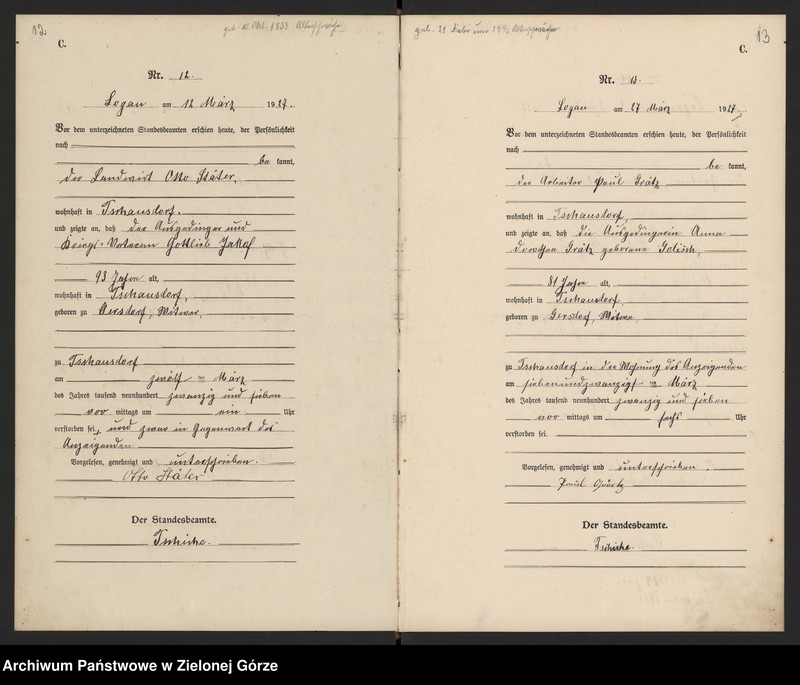 12.
geb. 10. Okt. 1833
C.
Nr. 12.
Logau am 12 März 1927.
Vor dem unterzeichneten Standesbeamten erschien heute, der Persönlichkeit
nach
be kannt,
der Landwirt Otto Stäter,
wohnhaft in Tschausdorf,
und zeigte an, daß der Ausgedinger und
Kriegs-Veteran Gottlieb Jakof
93 Jahre alt,
wohnhaft in Tschausdorf,
geboren zu Gersdorf, Witwer,
zu Tschausdorf
am zwölf ten März
des Jahres tausend neunhundert zwanzig und sieben
vor mittags um ein Uhr
verstorben sei, und zwar in Gegenwart des
Anzeigenden
Vorgelesen, genehmigt und unterschrieben.
Otto Stäter
Der Standesbeamte.
Tschirke.
13
geb. 21
C.
Nr. 13.
Logau am 27 März 1927.
Vor dem unterzeichneten Standesbeamten erschien heute, der Persönlichkeit
nach
be kannt,
der Arbeiter Paul Grätz
wohnhaft in Tschausdorf,
und zeigte an, daß die Ausgedingerin Anna
Dorothea Grätz geborene Golisch,
81 Jahre alt,
wohnhaft in Tschausdorf,
geboren zu Gersdorf, Witwe
zu Tschausdorf in der Wohnung des Anzeigenden
am siebenundzwanzigsten März
des Jahres tausend neunhundert zwanzig und sieben
vor mittags um sechs Uhr
verstorben sei.
Vorgelesen, genehmigt und unterschrieben.
Paul Grätz
Der Standesbeamte.
Tschirke.
Archiwum Państwowe w Zielonej Górze